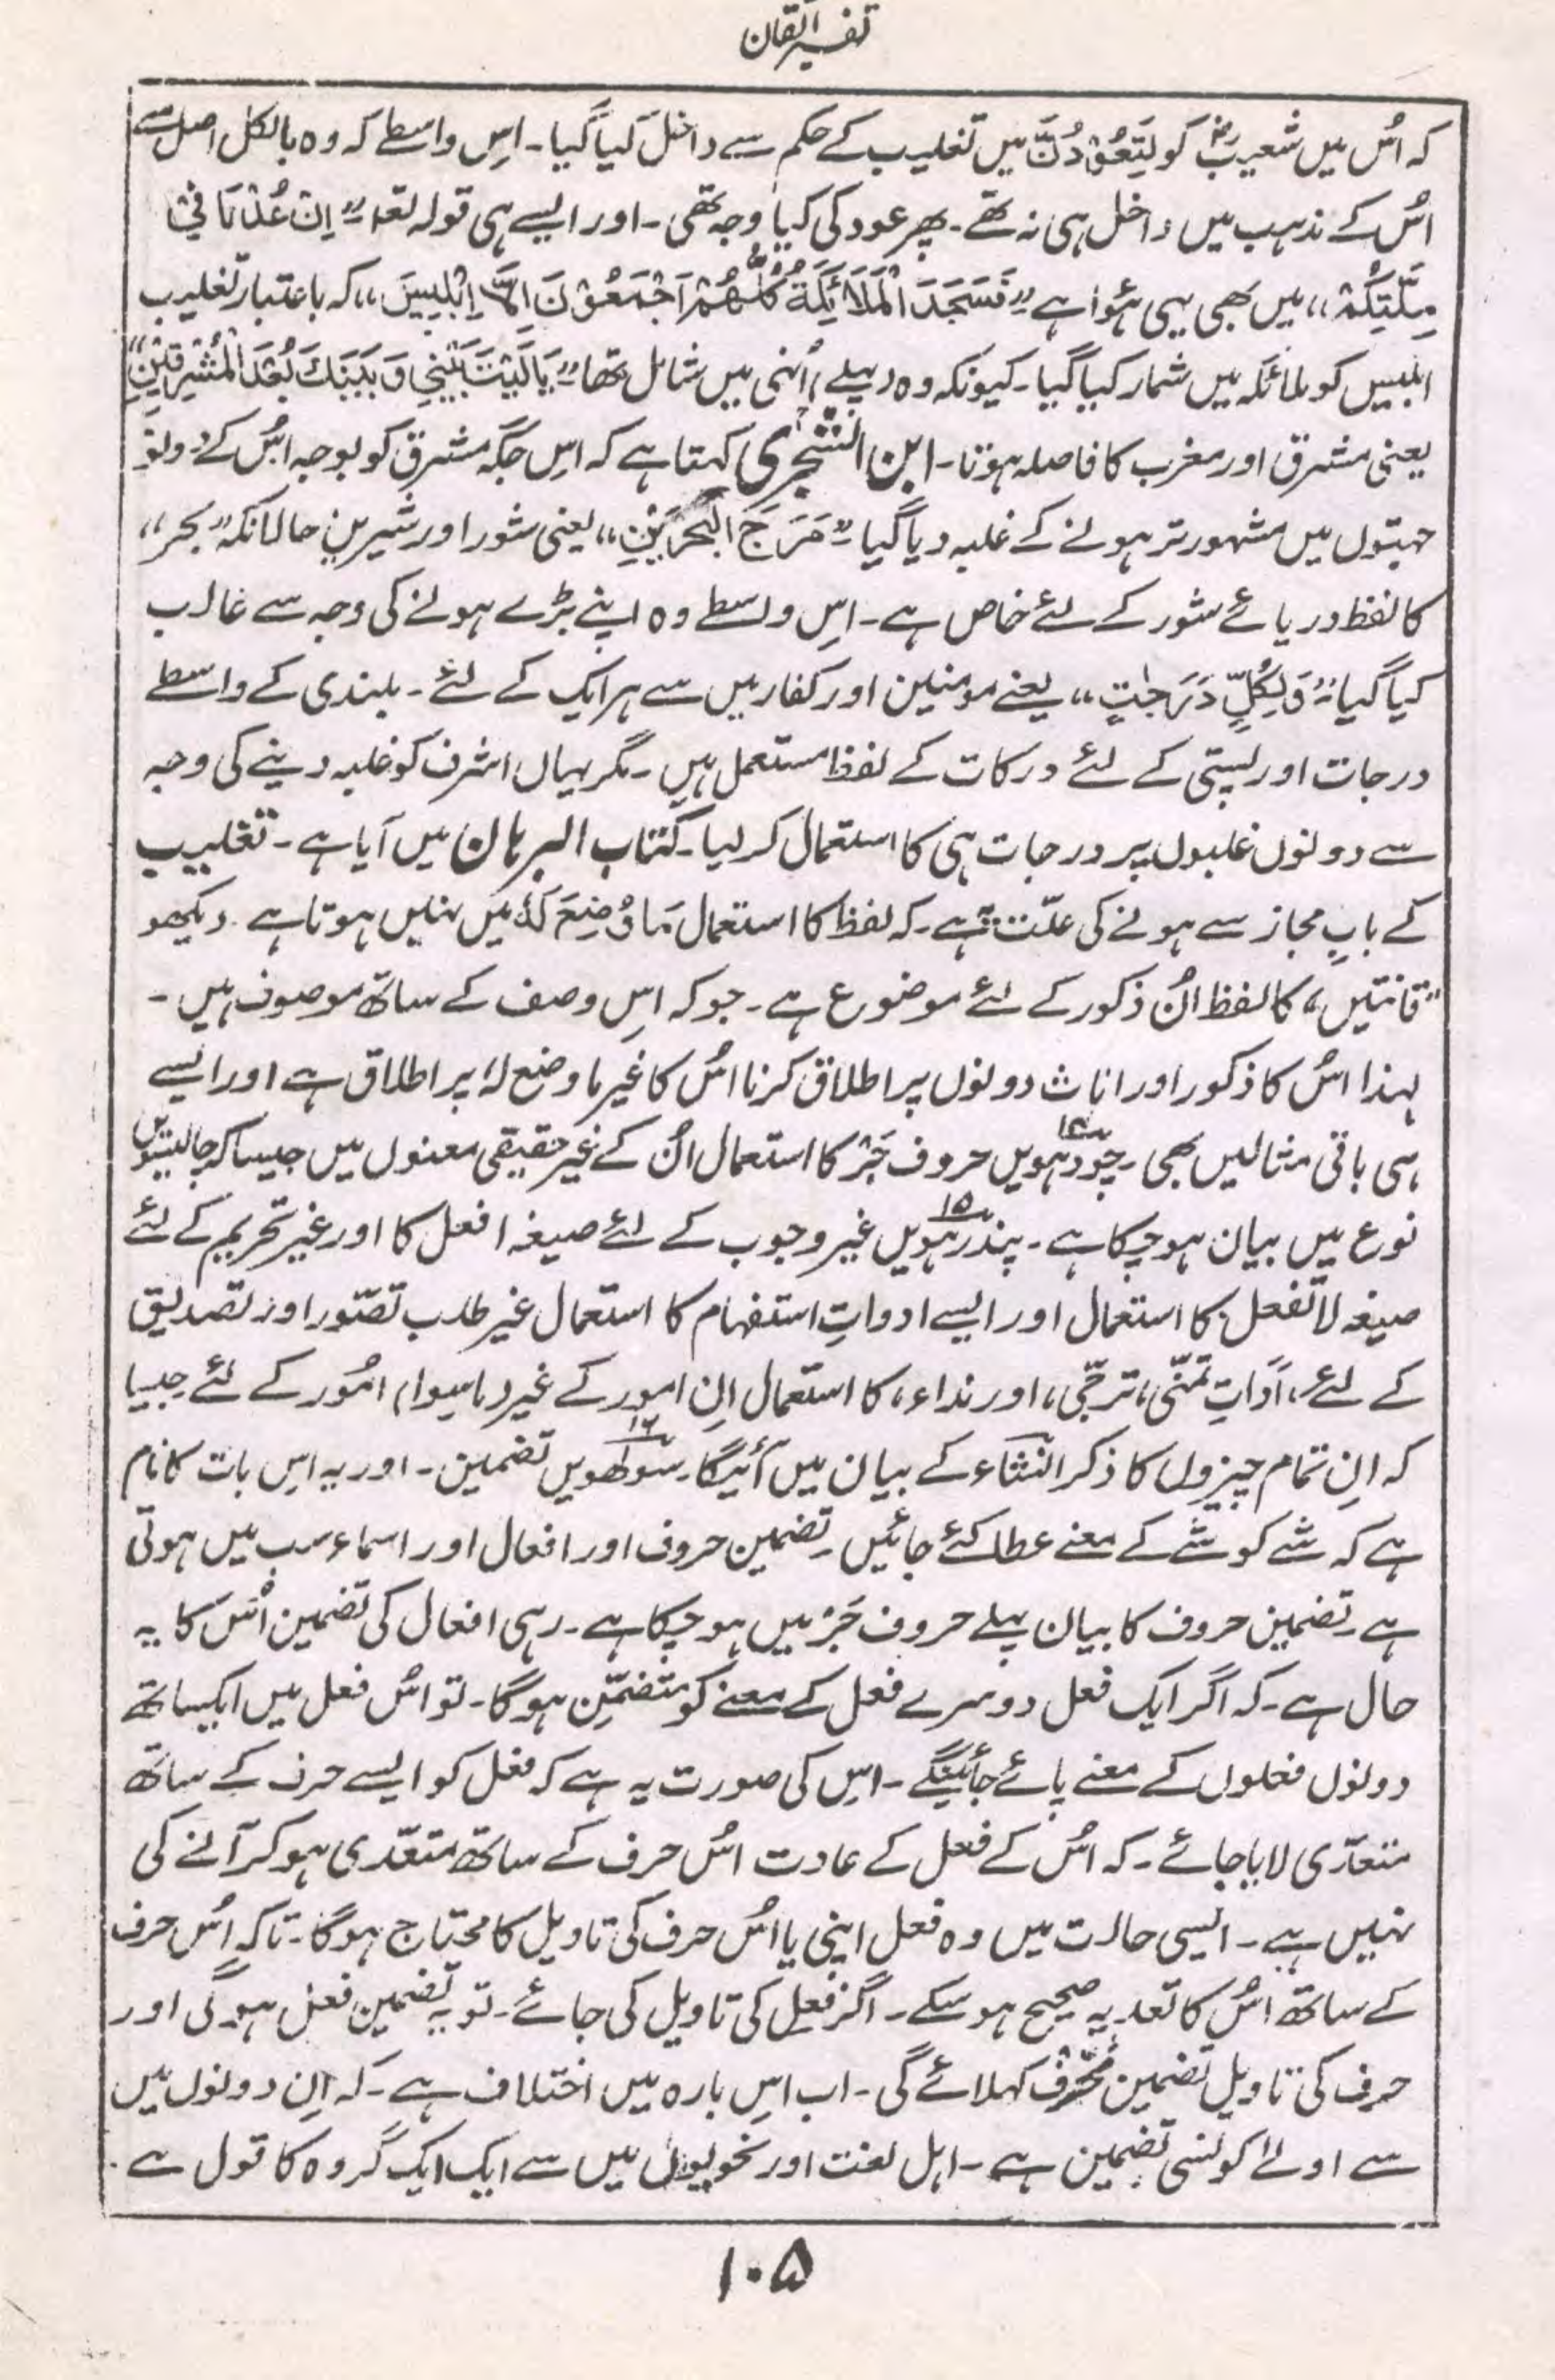 تفسیر اتقان
کہ اُس میں شعیبؑ کو لَتَعُوْدُنَّ میں تغلیب کے حکم سے داخل کیا گیا۔ اِس واسطے کہ وہ بالکل اصل سے
اُس کے مذہب میں داخل ہی نہ تھے۔ پھر عود کی کیا وجہ تھی۔ اور ایسے ہی قولہ تعہ ”اِنْ عُدْنَا فِیْ
مِلَّتِکُمْ“ میں بھی یہی ہُوا ہے ”فَسَجَدَ الْمَلَائِکَةُ کُلُّھُمْ اَجْمَعُوْنَ اِلَّا اِبْلِیْسَ“ کہ باعتبار تغلیب
ابلیس کو ملائکہ میں شمار کیا گیا۔ کیونکہ وہ (پہلے) اُنہی میں شامل تھا ”یَالَیْتَ بَیْنِیْ وَبَیْنَکَ بُعْدَ الْمَشْرِقَیْنِ“
یعنی مشرق اور مغرب کا فاصلہ ہوتا۔ ابن الشجری کہتا ہے کہ اِس جگہ مشرق کو بوجہ اُس کے دونو
جہتوں میں مشہور تر ہونے کے غلبہ دیا گیا ”مَرَجَ الْبَحْرَیْنِ“ یعنی شور اور شیریں حالانکہ ”بحر“
کا لفظ دریائے شور کے لئے خاص ہے۔ اِس واسطے وہ اپنے بڑے ہونے کی وجہ سے غالب
کیا گیا ”وَلِکُلٍّ دَرَجٰتٍ“ یعنے مومنین اور کفار میں سے ہر ایک کے لئے۔ بلندی کے واسطے
درجات اور پستی کے لئے درکات کے لفظ مستعمل ہیں۔ مگر یہاں اشرف کو غلبہ دینے کی وجہ
سے دونوں غلبوں پر درجات ہی کا استعمال کر لیا۔ کتاب البرہان میں آیا ہے۔ تغلیب
کے بابِ مجاز سے ہونے کی علّت یہ ہے۔ کہ لفظ کا استعمال مَا وُضِعَ لَہٗ میں نہیں ہوتا ہے۔ دیکھو
”قانتین“ کا لفظ اُن ذکور کے لئے موضوع ہے۔ جو کہ اِس وصف کے ساتھ موصوف ہیں۔
لہذا اُس کا ذکور اور اناث دونوں پر اطلاق کرنا اُس کا غیر ما وضع لہٗ پر اطلاق ہے اور ایسے
ہی باقی مثالیں بھی۔ چودہویں ۱۴ حروف جَرّ کا استعمال اُن کے غیر حقیقی معنوں میں جیسا کہ چالیسویں
نوع میں بیان ہو چکا ہے۔ پندرہویں ۱۵ غیر وجوب کے لئے صیغہ افعل کا اور غیر تحریم کے لئے
صیغہ لا تفعل کا استعمال اور ایسے ادواتِ استفہام کا استعمال غیر طلب تصّور اور تصدیق
کے لئے، اَداتِ تمنّی، ترجّی، اور نداء، کا استعمال اِن امور کے غیر (ماسوا) امُور کے لئے جیسا
کہ اِن تمام چیزوں کا ذکر انشاء کے بیان میں آئیگا۔ سولھویں ۱۶ تضمین۔ اور یہ اِس بات کا نام
ہے کہ شے کو شے کے معنے عطا کئے جائیں۔ تضمین حروف اور افعال اور اسماء سب میں ہوتی
ہے۔ تضمین حروف کا بیان پہلے حروف جَرّ میں ہو چکا ہے۔ رہی افعال کی تضمین اُس کا یہ
حال ہے۔ کہ اگر ایک فعل دوسرے فعل کے معنے کو متضمّن ہوگا۔ تو اُس فعل میں ایکساتھ
دونوں فعلوں کے معنے پائے جائینگے۔ اِس کی صورت یہ ہے کہ فعل کو ایسے حرف کے ساتھ
متعدّی لایا جائے۔ کہ اُس کے فعل کے عادت اُس حرف کے ساتھ متعّدی ہو کر آنے کی
نہیں ہے۔ ایسی حالت میں وہ فعل اپنی یا اُس حرف کی تاویل کا محتاج ہوگا۔ تاکہ اُس حرف
کے ساتھ اُس کا تعدیہ صحیح ہو سکے۔ اگر فعل کی تاویل کی جائے۔ تو یہ تضمین فعل ہوگی اور
حرف کی تاویل تضمین حرف کہلائے گی۔ اب اِس بارہ میں اختلاف ہے۔ کہ اِن دونوں میں
سے اولےٰ کونسی تضمین ہے۔ اہل لغت اور نحویوں میں سے ایک ایک گروہ کا قول ہے۔
۱۰۵